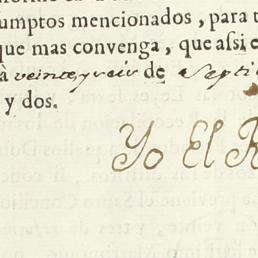 sumptos mencionados, para t
que mas convenga, que aſsi e
à veinte y seis de Septi
y dos.
Yo El R